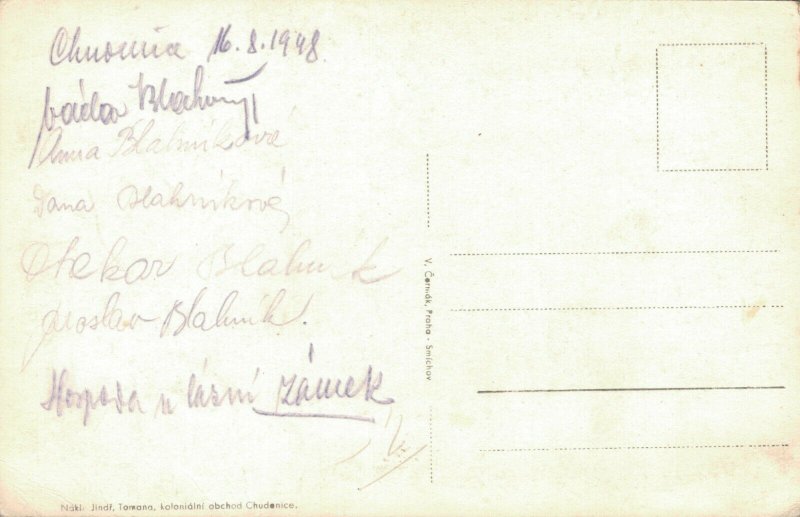 16.8.1948
Anna Blahníková
Dana Blahníková
Otakar Blahník
Jaroslav Blahník.
Hospoda u lázní zámek
V. Čermák, Praha - Smíchov
Nákl. Jindř. Tomana, koloniální obchod Chudenice.